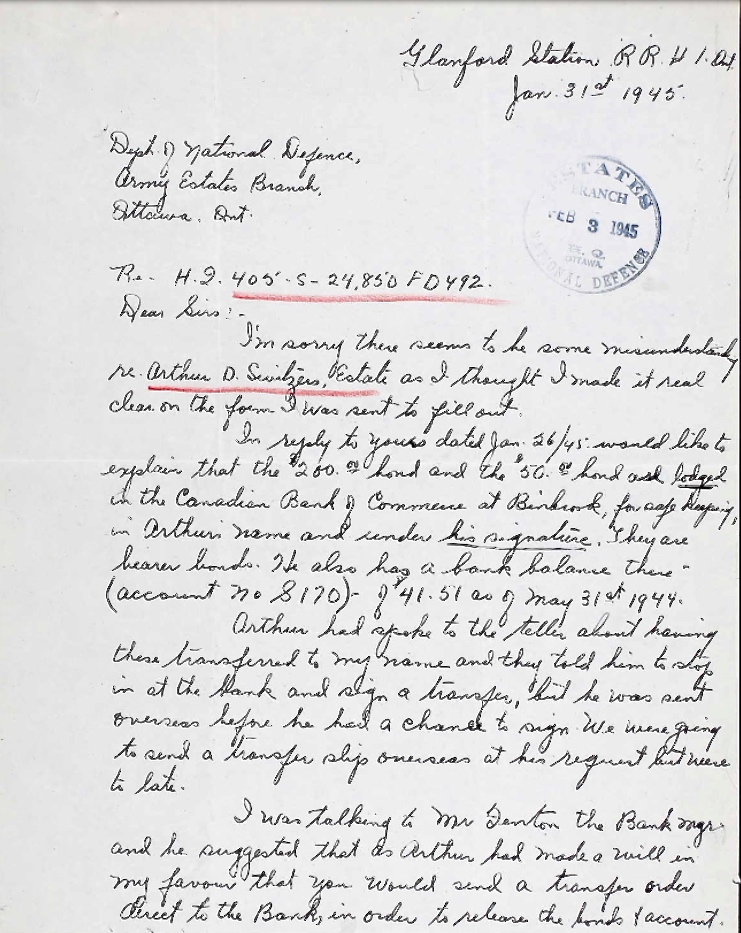 Glanford Station R R # 1. Ont.
Jan. 31st 1945.
Dept. of National Defence,
Army Estates Branch,
Ottawa. Ont.
ESTATES
BRANCH
FEB 3 1945
H. Q.
OTTAWA
NATIONAL DEFENCE
Re- H.Q. 405-S-24,850 FD 492.
Dear Sirs:-
I'm sorry there seems to be some misunderstanding
re. Arthur D. Switzers, Estate as I thought I made it real
clear on the form I was sent to fill out.
In reply to yours dated Jan. 26/45. would like to
explain that the $200.00 bond and the $50.00 bond are lodged
in the Canadian Bank of Commerce at Binbrook, for safe keeping,
in Arthur's name and under his signature. They are
bearer bonds. He also has a bank balance there-
(account No S170)- of $41.51 as of May 31st 1944.
Arthur had spoke to the teller about having
these transferred to my name and they told him to stop
in at the Bank and sign a transfer, but he was sent
overseas before he had a chance to sign. We were going
to send a transfer slip overseas at his request but were
to late.
I was talking to Mr Fenton the Bank mgr.
and he suggested that as Arthur had made a will in
my favour that you would send a transfer order
direct to the Bank, in order to release the bonds & account.